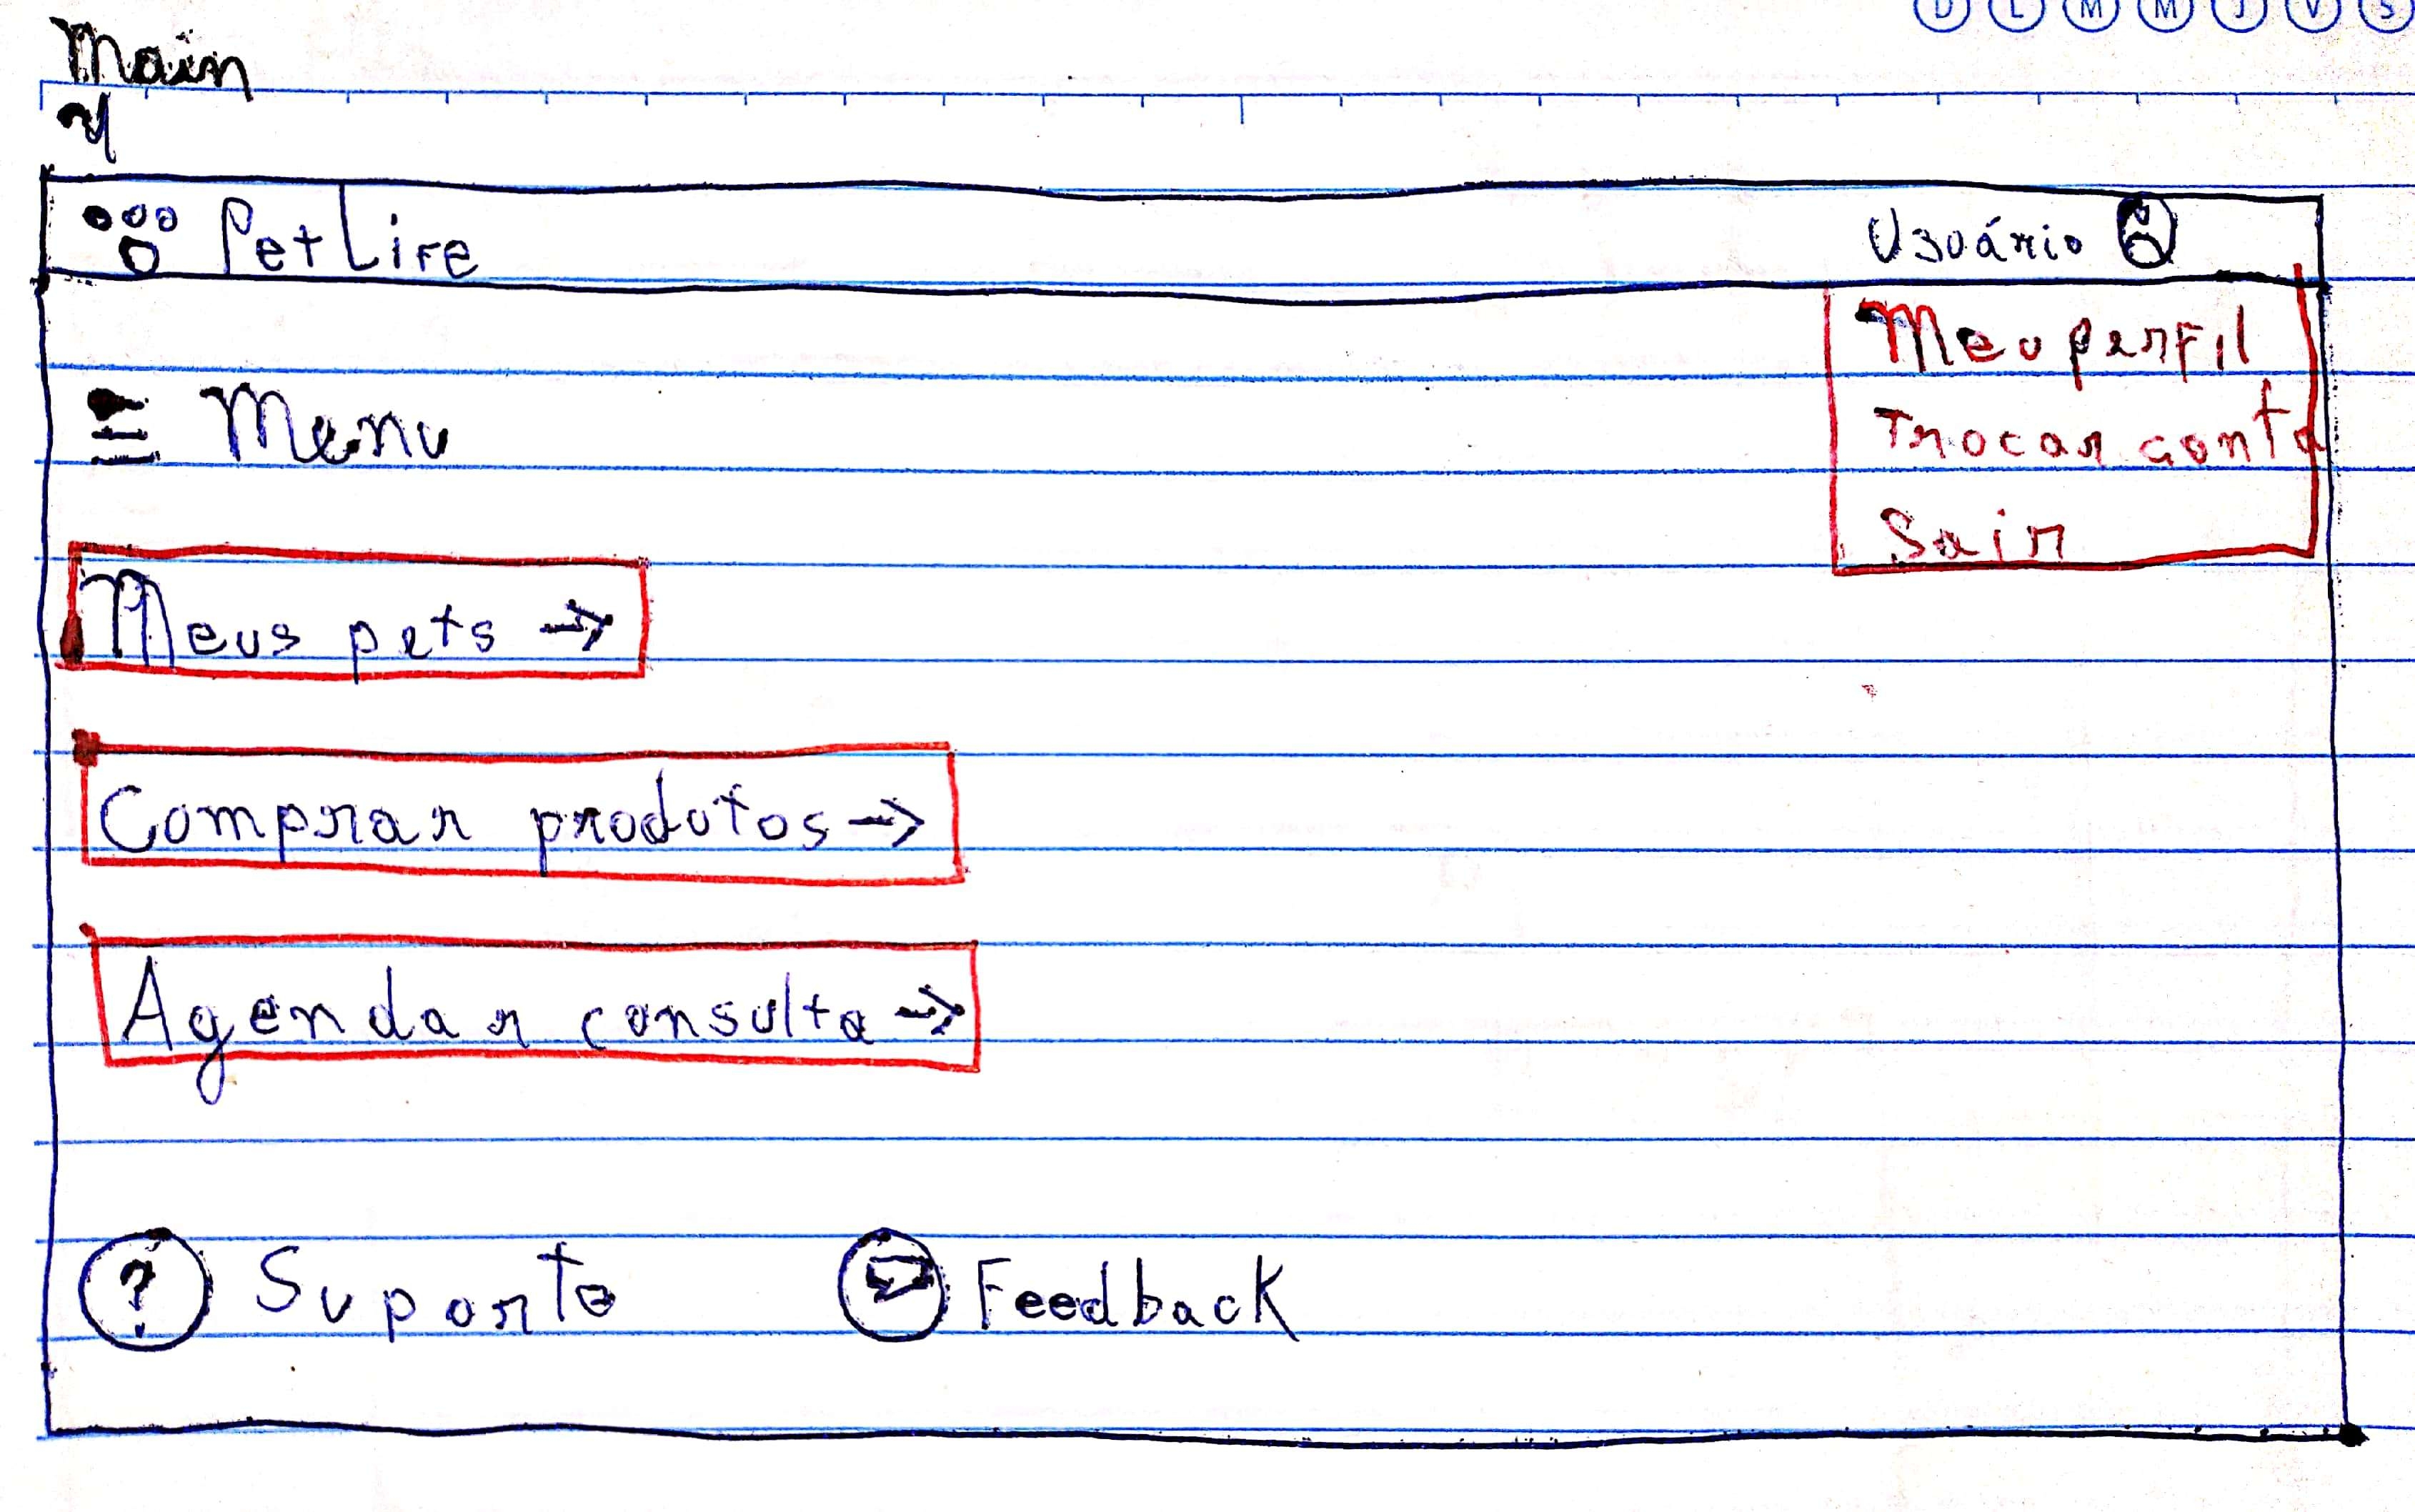 D L M M J V S
Main
PetLife
Usuário
Meu perfil
Trocar conta
Sair
Menu
Meus pets →
Comprar produtos →
Agendar consulta →
? Suporte
Feedback